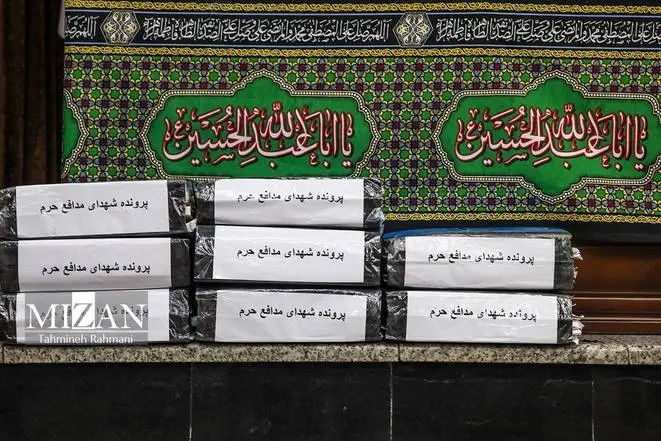 اللهم صل علی المصطفی محمد والمرتضی علی
یا اباعبدالله الحسین
یا اباعبدالله الحسین
پرونده شهدای مدافع حرم
پرونده شهدای مدافع حرم
پرونده شهدای مدافع حرم
پرونده شهدای مدافع حرم
پرونده شهدای مدافع حرم
پرونده شهدای مدافع حرم
پرونده شهدای مدافع حرم
پرونده شهدای مدافع حرم
MIZAN
Tahmineh Rahmani